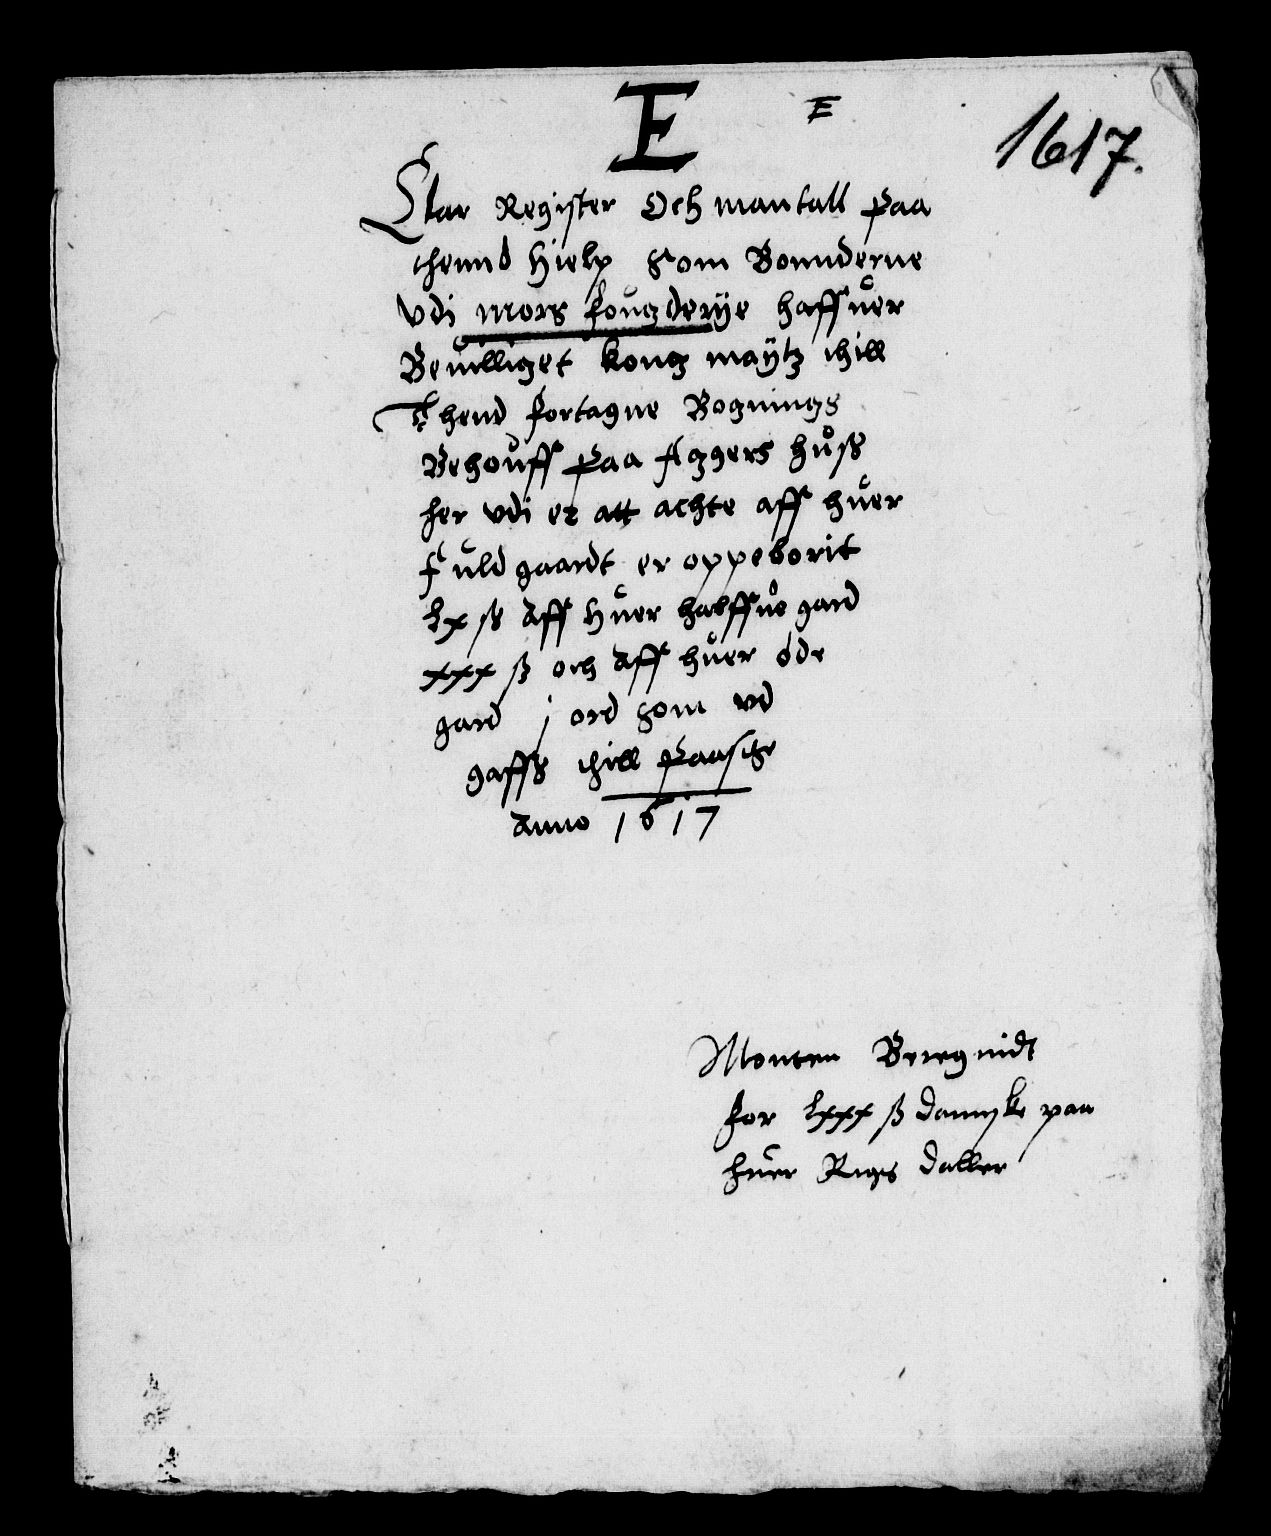 E E
1617.
Klar Register Och mantall paa
thennd hielp som Bonnderne
vdi mors fougderÿe haffuer
Beuilliget kong maÿtz thill
Thend fortagne Bognings
Behouff paa Aggers huss
her vdi er att achte aff huer
fuld gaardt er oppeborit
Lx ß Aff huer halffue gard
xxx ß och Aff huer öde
gard j ord som vd
gaffs thill paaske
Anno 1617
Monten Beregnidt
for Lxxx ß danske paa
huer Rigs daller